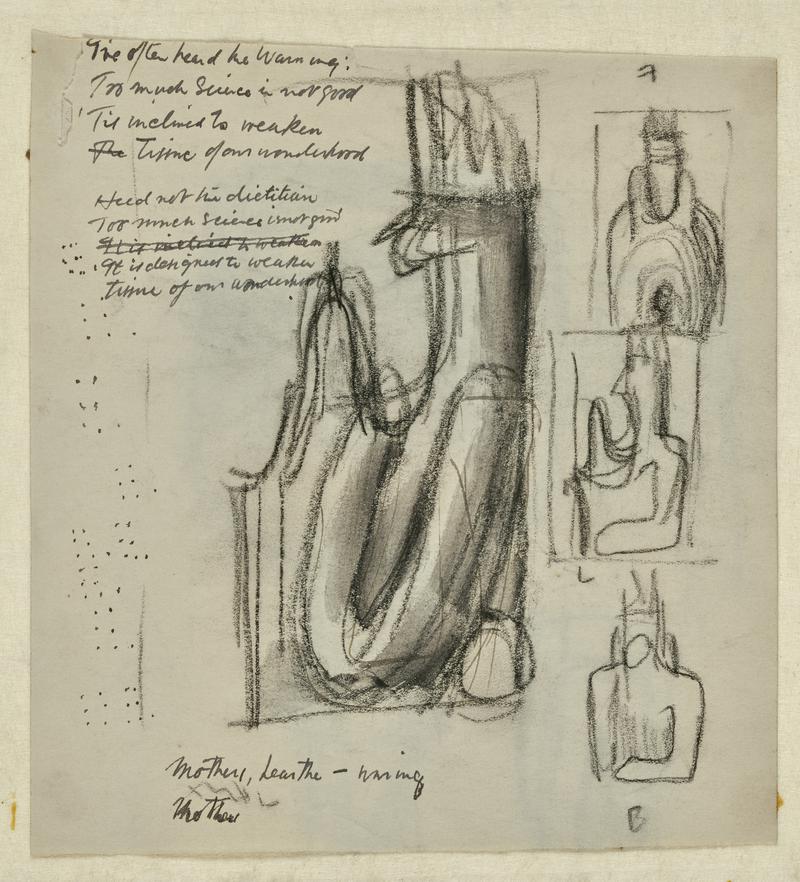 I've often heard the Warning:
Too much Science is not good
'Tis inclined to weaken
The Tissue of our wonderhood
Heed not the dietitian
Too much Science is not good
It is inclined to weaken
It is designed to weaken
tissue of our wonderhood
Mothers,
Mother
F
L
B